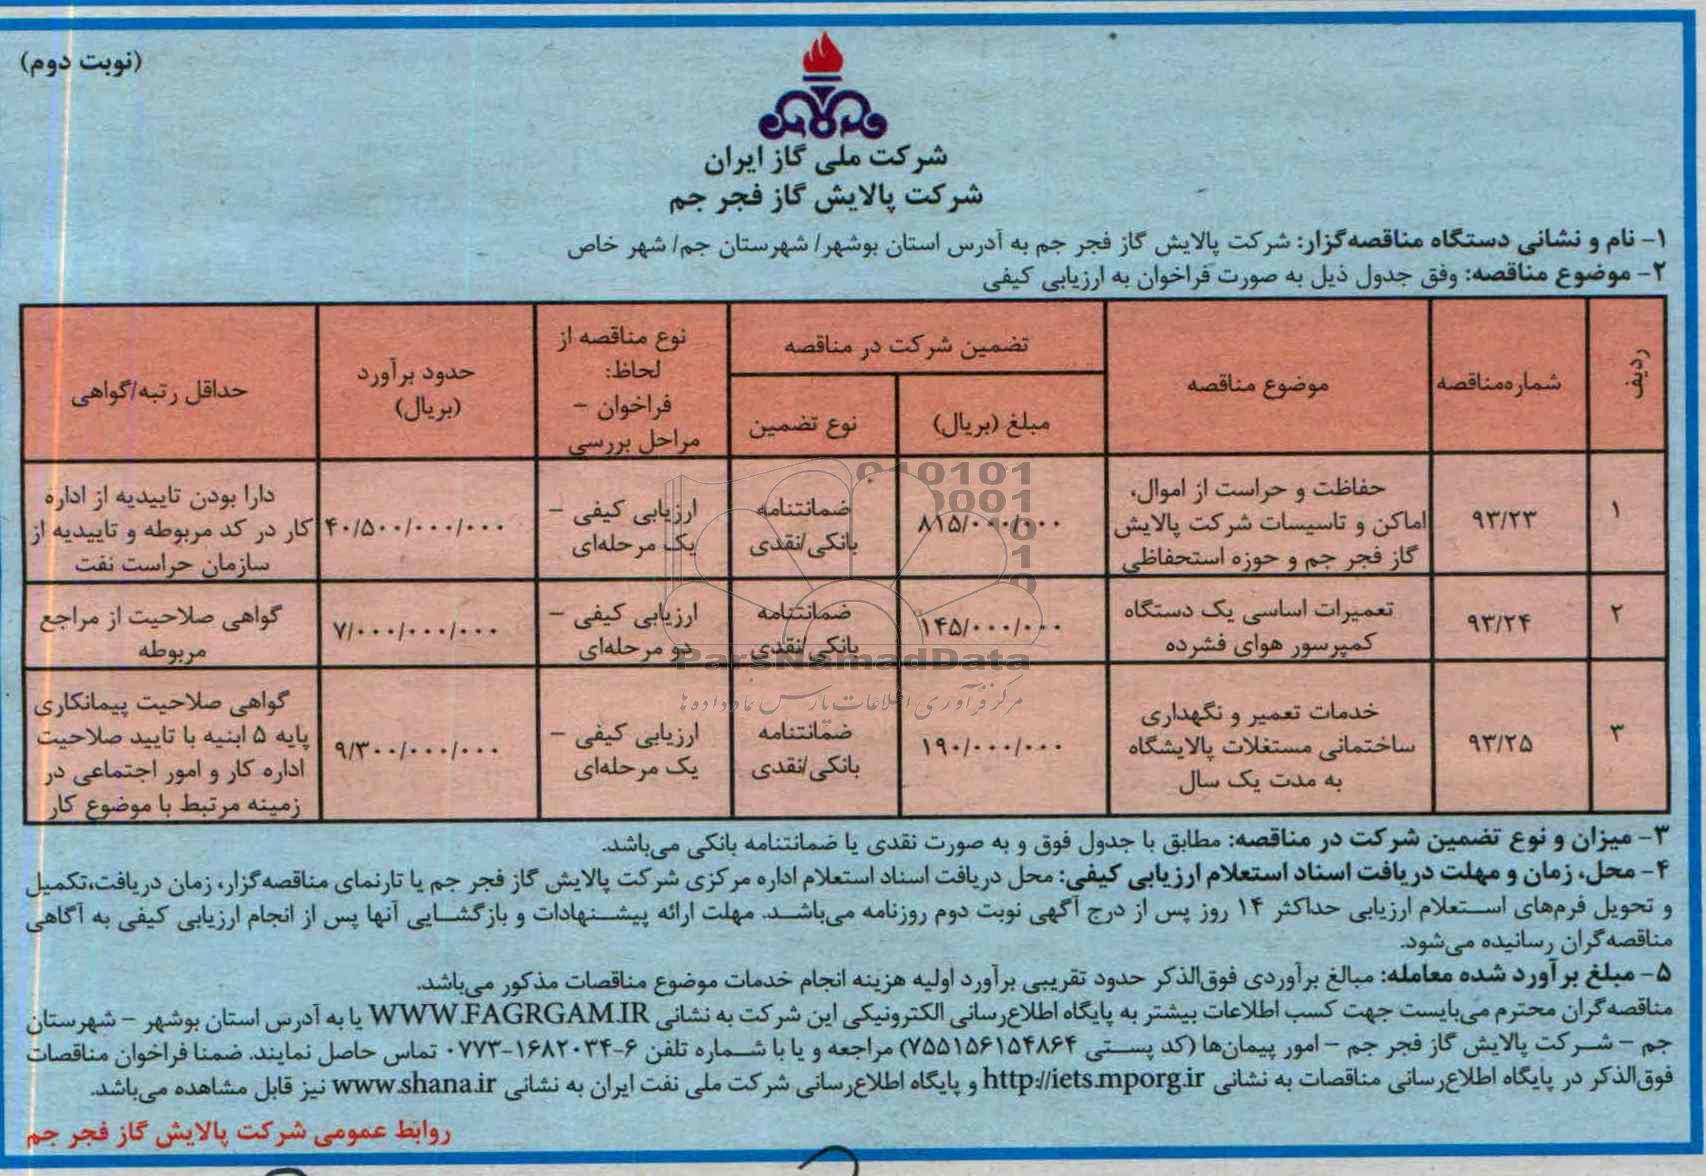 (نوبت دوم)
شرکت ملی گاز ایران
شرکت پالایش گاز فجر جم
۱- نام و نشانی دستگاه مناقصه‌گزار: شرکت پالایش گاز فجر جم به آدرس استان بوشهر/ شهرستان جم/ شهر خاص
۲- موضوع مناقصه: وفق جدول ذیل به صورت فراخوان به ارزیابی کیفی
ردیف
شماره‌مناقصه
موضوع مناقصه
تضمین شرکت در مناقصه
مبلغ (بریال)
نوع تضمین
نوع مناقصه از
لحاظ:
فراخوان –
مراحل بررسی
حدود برآورد
(بریال)
حداقل رتبه/گواهی
۱
۹۳/۲۳
حفاظت و حراست از اموال،
اماکن و تاسیسات شرکت پالایش
گاز فجر جم و حوزه استحفاظی
۸۱۵/۰۰۰/۰۰۰
ضمانتنامه
بانکی/نقدی
ارزیابی کیفی –
یک مرحله‌ای
۴۰/۵۰۰/۰۰۰/۰۰۰
دارا بودن تاییدیه از اداره
کار در کد مربوطه و تاییدیه از
سازمان حراست نفت
۲
۹۳/۲۴
تعمیرات اساسی یک دستگاه
کمپرسور هوای فشرده
۱۴۵/۰۰۰/۰۰۰
ضمانتنامه
بانکی/نقدی
ارزیابی کیفی –
دو مرحله‌ای
۷/۰۰۰/۰۰۰/۰۰۰
گواهی صلاحیت از مراجع
مربوطه
۳
۹۳/۲۵
خدمات تعمیر و نگهداری
ساختمانی مستغلات پالایشگاه
به مدت یک سال
۱۹۰/۰۰۰/۰۰۰
ضمانتنامه
بانکی/نقدی
ارزیابی کیفی –
یک مرحله‌ای
۹/۳۰۰/۰۰۰/۰۰۰
گواهی صلاحیت پیمانکاری
پایه ۵ ابنیه با تایید صلاحیت
اداره کار و امور اجتماعی در
زمینه مرتبط با موضوع کار
ParsNamadData
مرکز فرآوری اطلاعات پارس نماد داده ها
۳- میزان و نوع تضمین شرکت در مناقصه: مطابق با جدول فوق و به صورت نقدی یا ضمانتنامه بانکی می‌باشد.
۴- محل، زمان و مهلت دریافت اسناد استعلام ارزیابی کیفی: محل دریافت اسناد استعلام اداره مرکزی شرکت پالایش گاز فجر جم یا تارنمای مناقصه‌گزار، زمان دریافت،تکمیل
و تحویل فرم‌های استعلام ارزیابی حداکثر ۱۴ روز پس از درج آگهی نوبت دوم روزنامه می‌باشد. مهلت ارائه پیشنهادات و بازگشایی آنها پس از انجام ارزیابی کیفی به آگاهی
مناقصه‌گران رسانیده می‌شود.
۵- مبلغ برآورد شده معامله: مبالغ برآوردی فوق‌الذکر حدود تقریبی برآورد اولیه هزینه انجام خدمات موضوع مناقصات مذکور می‌باشد.
مناقصه‌گران محترم می‌بایست جهت کسب اطلاعات بیشتر به پایگاه اطلاع‌رسانی الکترونیکی این شرکت به نشانی WWW.FAGRGAM.IR یا به آدرس استان بوشهر – شهرستان
جم – شرکت پالایش گاز فجر جم – امور پیمان‌ها (کد پستی ۷۵۵۱۵۶۱۵۴۸۶۴) مراجعه و یا با شماره تلفن ۶-۱۶۸۲۰۳۴-۰۷۷۳ تماس حاصل نمایند. ضمنا فراخوان مناقصات
فوق‌الذکر در پایگاه اطلاع‌رسانی مناقصات به نشانی http://iets.mporg.ir و پایگاه اطلاع‌رسانی شرکت ملی نفت ایران به نشانی www.shana.ir نیز قابل مشاهده می‌باشد.
روابط عمومی شرکت پالایش گاز فجر جم